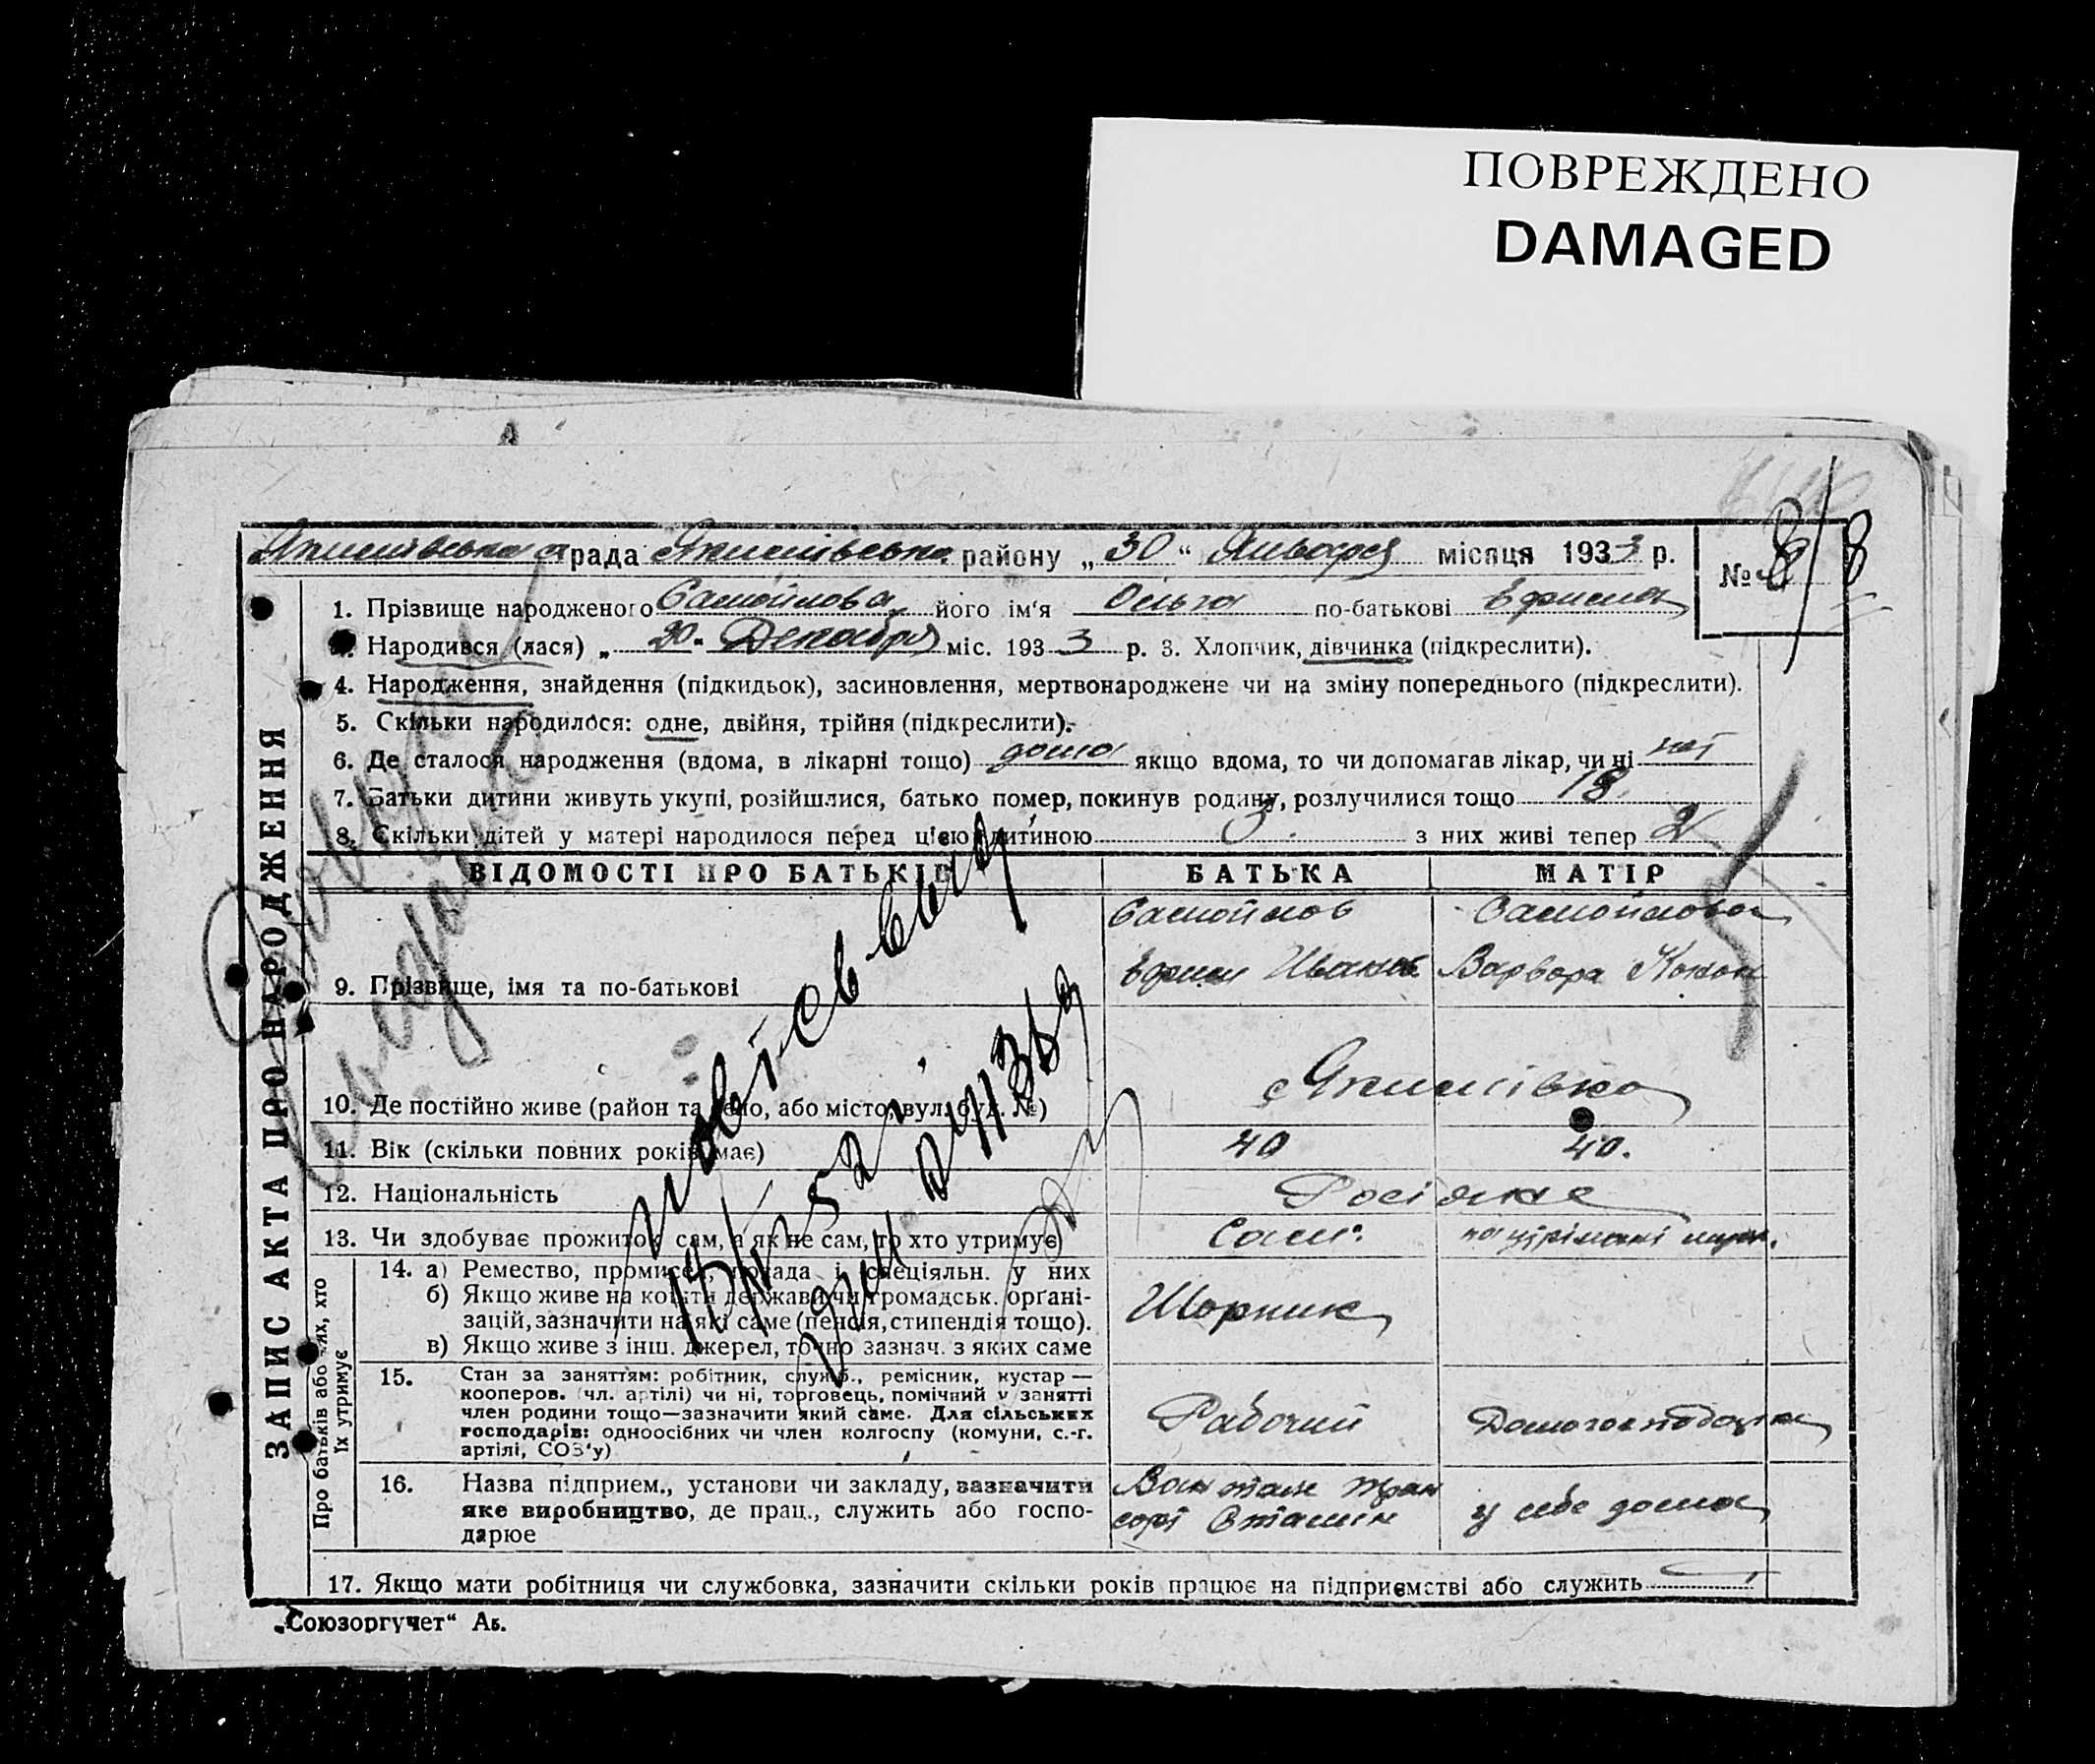 ПОВРЕЖДЕНО
DAMAGED
А
Якимівська рада Якимівська району „30“ Января місяця 1933 р.
№ 8 8
1. Прізвище народженого Самойлова його ім'я Ольга по-батькові Ефрима
Народився (лася) „20" Декабря міс. 1933 р. 3. Хлопчик, дівчинка (підкреслити).
4. Народження, знайдення (підкидьок), засиновлення, мертвонароджене чи на зміну попереднього (підкреслити).
5. Скільки народилося: одне, двійня, трійня (підкреслити).
6. Де сталося народження (вдома, в лікарні тощо) дома якщо вдома, то чи допомагав лікар, чи ні нет
7. Батьки дитини живуть укупі, розійшлися, батько помер, покинув родину, розлучилися тощо 18
8. Скільки дітей у матері народилося перед цією дитиною 3 з них живі тепер 2
ЗАПИС АКТА ПРО НАРОДЖЕННЯ
ВІДОМОСТІ ПРО БАТЬКІВ БАТЬКА МАТІР
Самойлов Самойлова
9. Прізвище, імя та по-батькові Ефрим Иванов Варвара
10. Де постійно живе (район та село, або місто, вул. буд. №) с Якимівка
11. Вік (скільки повних років має) 40 40.
12. Національність Росіяне
13. Чи здобуває прожиток сам, а як не сам, то хто утримує Сам. на утрімані
Про батьків або тих, хто їх утримує
14. а) Ремество, промисел, посада і спеціяльн. у них Шорник
б) Якщо живе на кошти державн. чи громадськ. орґані-
зацій, зазначити на які саме (пенсія, стипендія тощо).
в) Якщо живе з інш. джерел, точно зазнач. з яких саме
15. Стан за заняттям: робітник, служб., ремісник, кустар —
кооперов. (чл. артілі) чи ні, торговець, помічний у занятті
член родини тощо—зазначити який саме. Для сільських
господарів: одноосібних чи член колгоспу (комуни, с.-г.
артілі, СОЗ'у)
Рабочий
16. Назва підприєм., установи чи закладу, зазначити
яке виробництво, де прац., служить або госпо-
дарює
у себе дома
17. Якщо мати робітниця чи службовка, зазначити скільки років працює на підприємстві або служить
„Союзоргучет“ Аь.